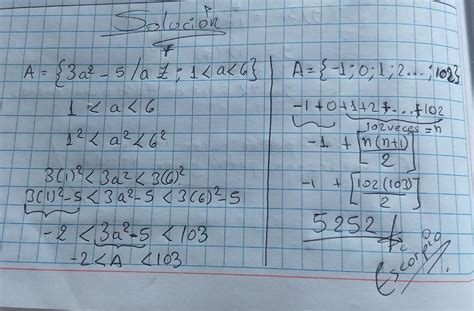 Solución
A = {3a² - 5 / a Z ; 1 < a < 6}
1 < a < 6
1² < a² < 6²
3(1)² < 3a² < 3(6)²
3(1)² - 5 < 3a² - 5 < 3(6)² - 5
-2 < 3a² - 5 < 103
-2 < A < 103
A = {-1; 0; 1; 2...; 102}
-1 + 0 + 1 + 2 + ... + 102
102 veces = n
-1 + [n(n+1)/2]
-1 + [102(103)/2]
5252
Escorpio